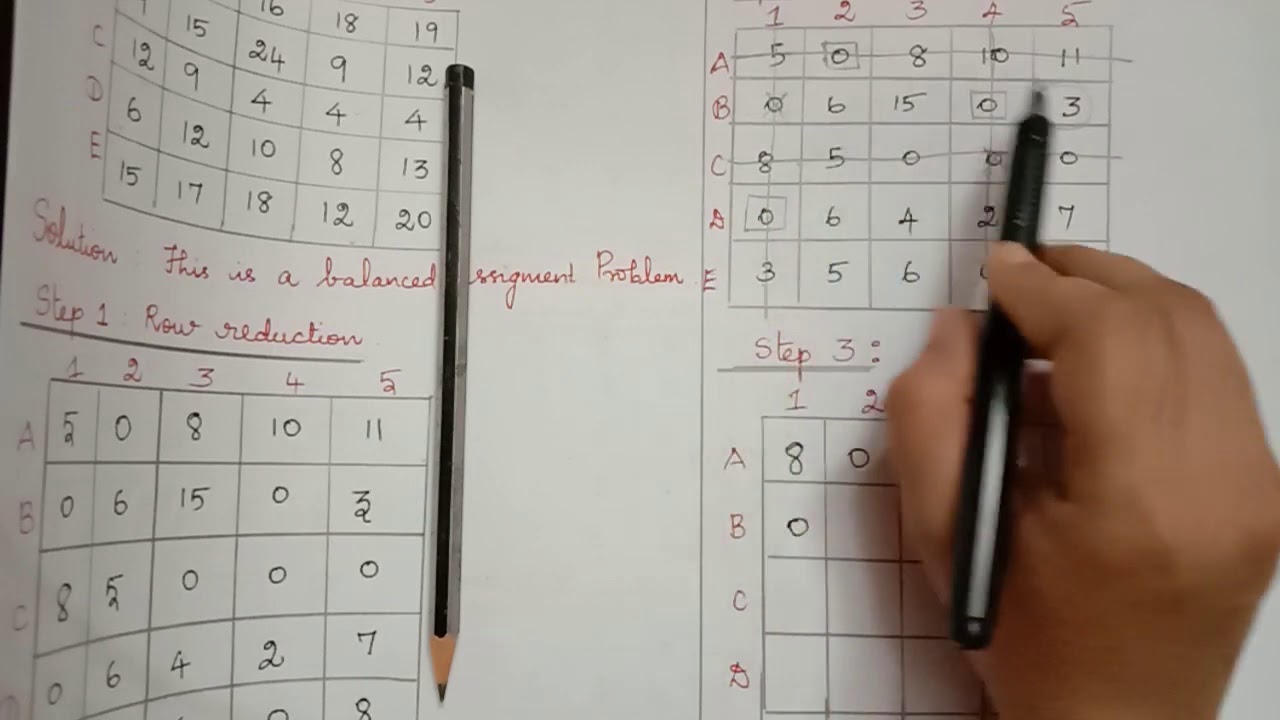 16 18 19
C 15 24 9 12
12 9 4 4 4
D 6 12 10 8 13
E 15 17 18 12 20
Solution : This is a balanced ssigment Problem
Step 1 : Row reduction
1 2 3 4 5
A 5 0 8 10 11
B 0 6 15 0 3
C 8 5 0 0 0
0 6 4 2 7
0 8
1 2 3 4 5
A 5 0 8 10 11
B 0 6 15 0 3
C 8 5 0 0 0
D 0 6 4 2 7
E 3 5 6
Step 3 :
1 2
A 8 0
B 0
C
D